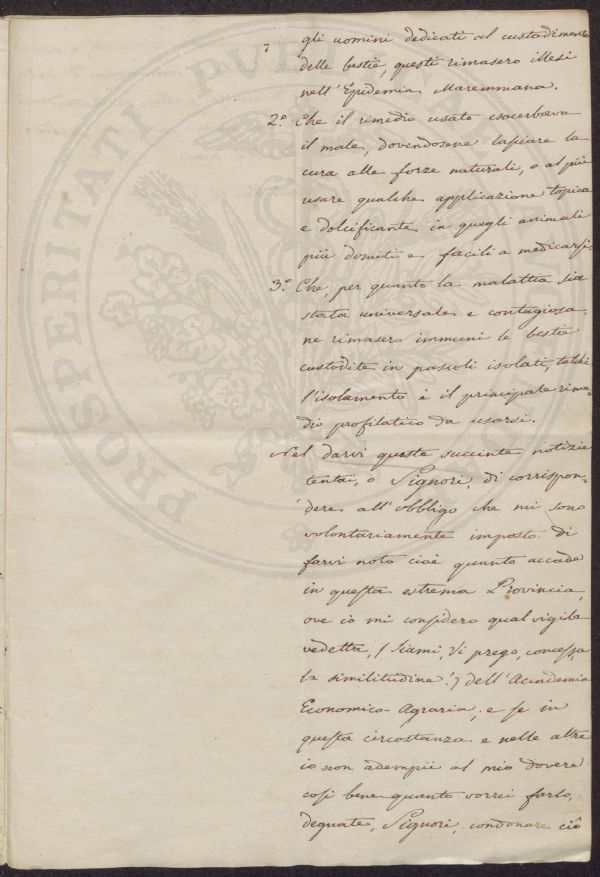 gli uomini dedicati al custodimento
delle bestie, questi rimasero illesi
nell'Epidemia Maremmana.
2.° Che il rimedio usato esacerbava
il male, dovendosene lasciare la
cura alle forze naturali, o al più
usare qualche applicazione topica
e dolcificante in quegli animali
più domiti e facili a medicarsi.
3.° Che, per quanto la malattia sia
stata universale e contagiosa,
ne rimasero immuni le bestie
custodite in pascoli isolati, talchè
l'isolamento è il principale rime-
dio profilatico da usarsi.
Nel darvi queste succinte notizie
tentai, o Signori, di corrispon-
dere all'obbligo che mi sono
volontariamente imposto di
farvi noto cioè quanto accade
in questa estrema Provincia,
ove io mi considero qual vigile
vedetta, (siami, vi prego, concessa
la similitudine!) dell'Accademia
Economico-Agraria; e se in
questa circostanza e nelle altre
io non adempii al mio dovere
così bene quanto vorrei farlo,
degnate, Signori, condonare ciò
PROSPERITATI PUBLICAE